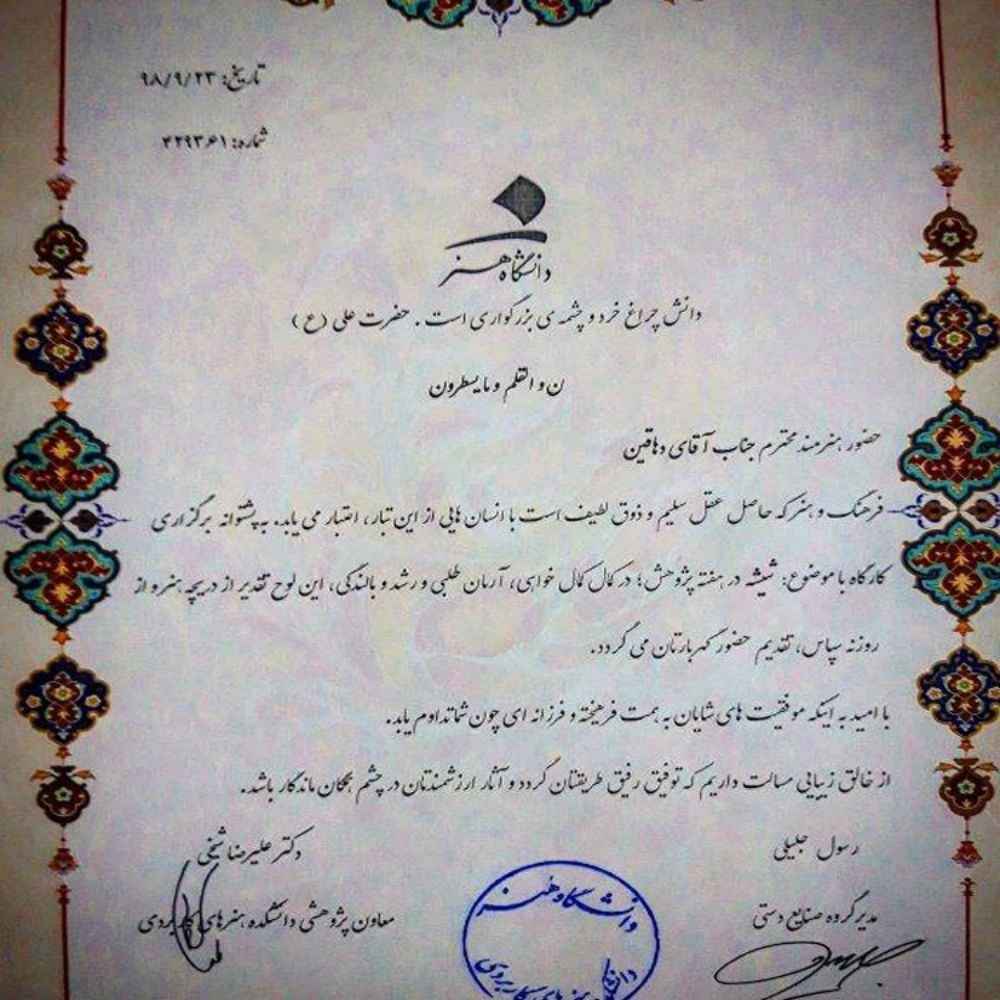 تاریخ: ۹۸/۹/۲۳
شماره: ۴۲۹۳۶۱
دانشگاه هنر
دانش چراغ خرد و چشمه ی بزرگواری است . حضرت علی (ع)
ن و القلم و مایسطرون
حضور هنرمند محترم جناب آقای دهاقین
فرهنگ و هنر که حاصل عقل سلیم و ذوق لطیف است با انسان هایی از این تبار، اعتبار می یابد. به پشتوانه برگزاری
کارگاه با موضوع: شیشه در هفته پژوهش؛ در کمال کمال خواهی، آرمان طلبی و رشد و بالندگی، این لوح تقدیر از دریچه هنر و از
روزنه سپاس، تقدیم حضور گهربارتان می گردد.
با امید به اینکه موفقیت های شایان به همت فرهیخته و فرزانه ای چون شما تداوم یابد.
از خالق زیبایی مسالت داریم که توفیق رفیق طریقتان گردد و آثار ارزشمندتان در چشم همگان ماندگار باشد.
رسول جلیلی
دکتر علیرضا شیخی
مدیر گروه صنایع دستی
معاون پژوهشی دانشکده هنرهای کاربردی
دانشگاه هنر
دانشکده هنرهای کاربردی